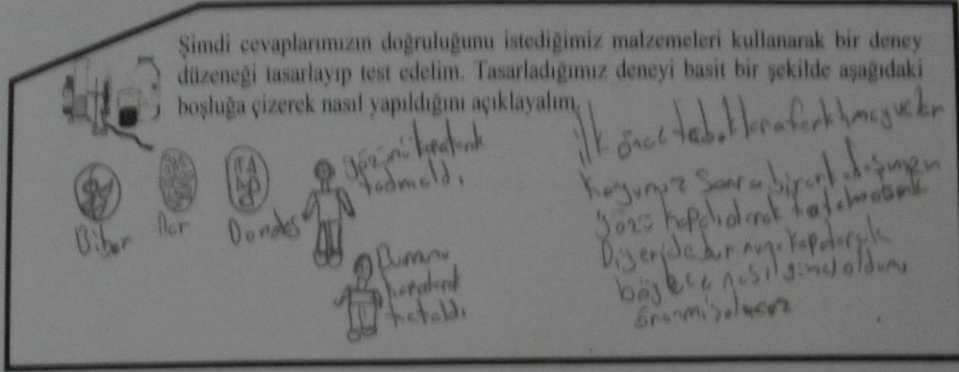 Şimdi cevaplarımızın doğruluğunu istediğimiz malzemeleri kullanarak bir deney
düzeneği tasarlayıp test edelim. Tasarladığımız deneyi basit bir şekilde aşağıdaki
boşluğa çizerek nasıl yapıldığını açıklayalım.
gözünü kapatarak
tadmaldı
Biber
Nar
Domates
Burnunu
kapatarak
tataldı
ilk önce tabaklara farklı meyveler
koyunuz sonra birarkadaşımın
gözü kapalı olarak
Diğeride burnunu kapatarak
böylece nasıl olduğunu